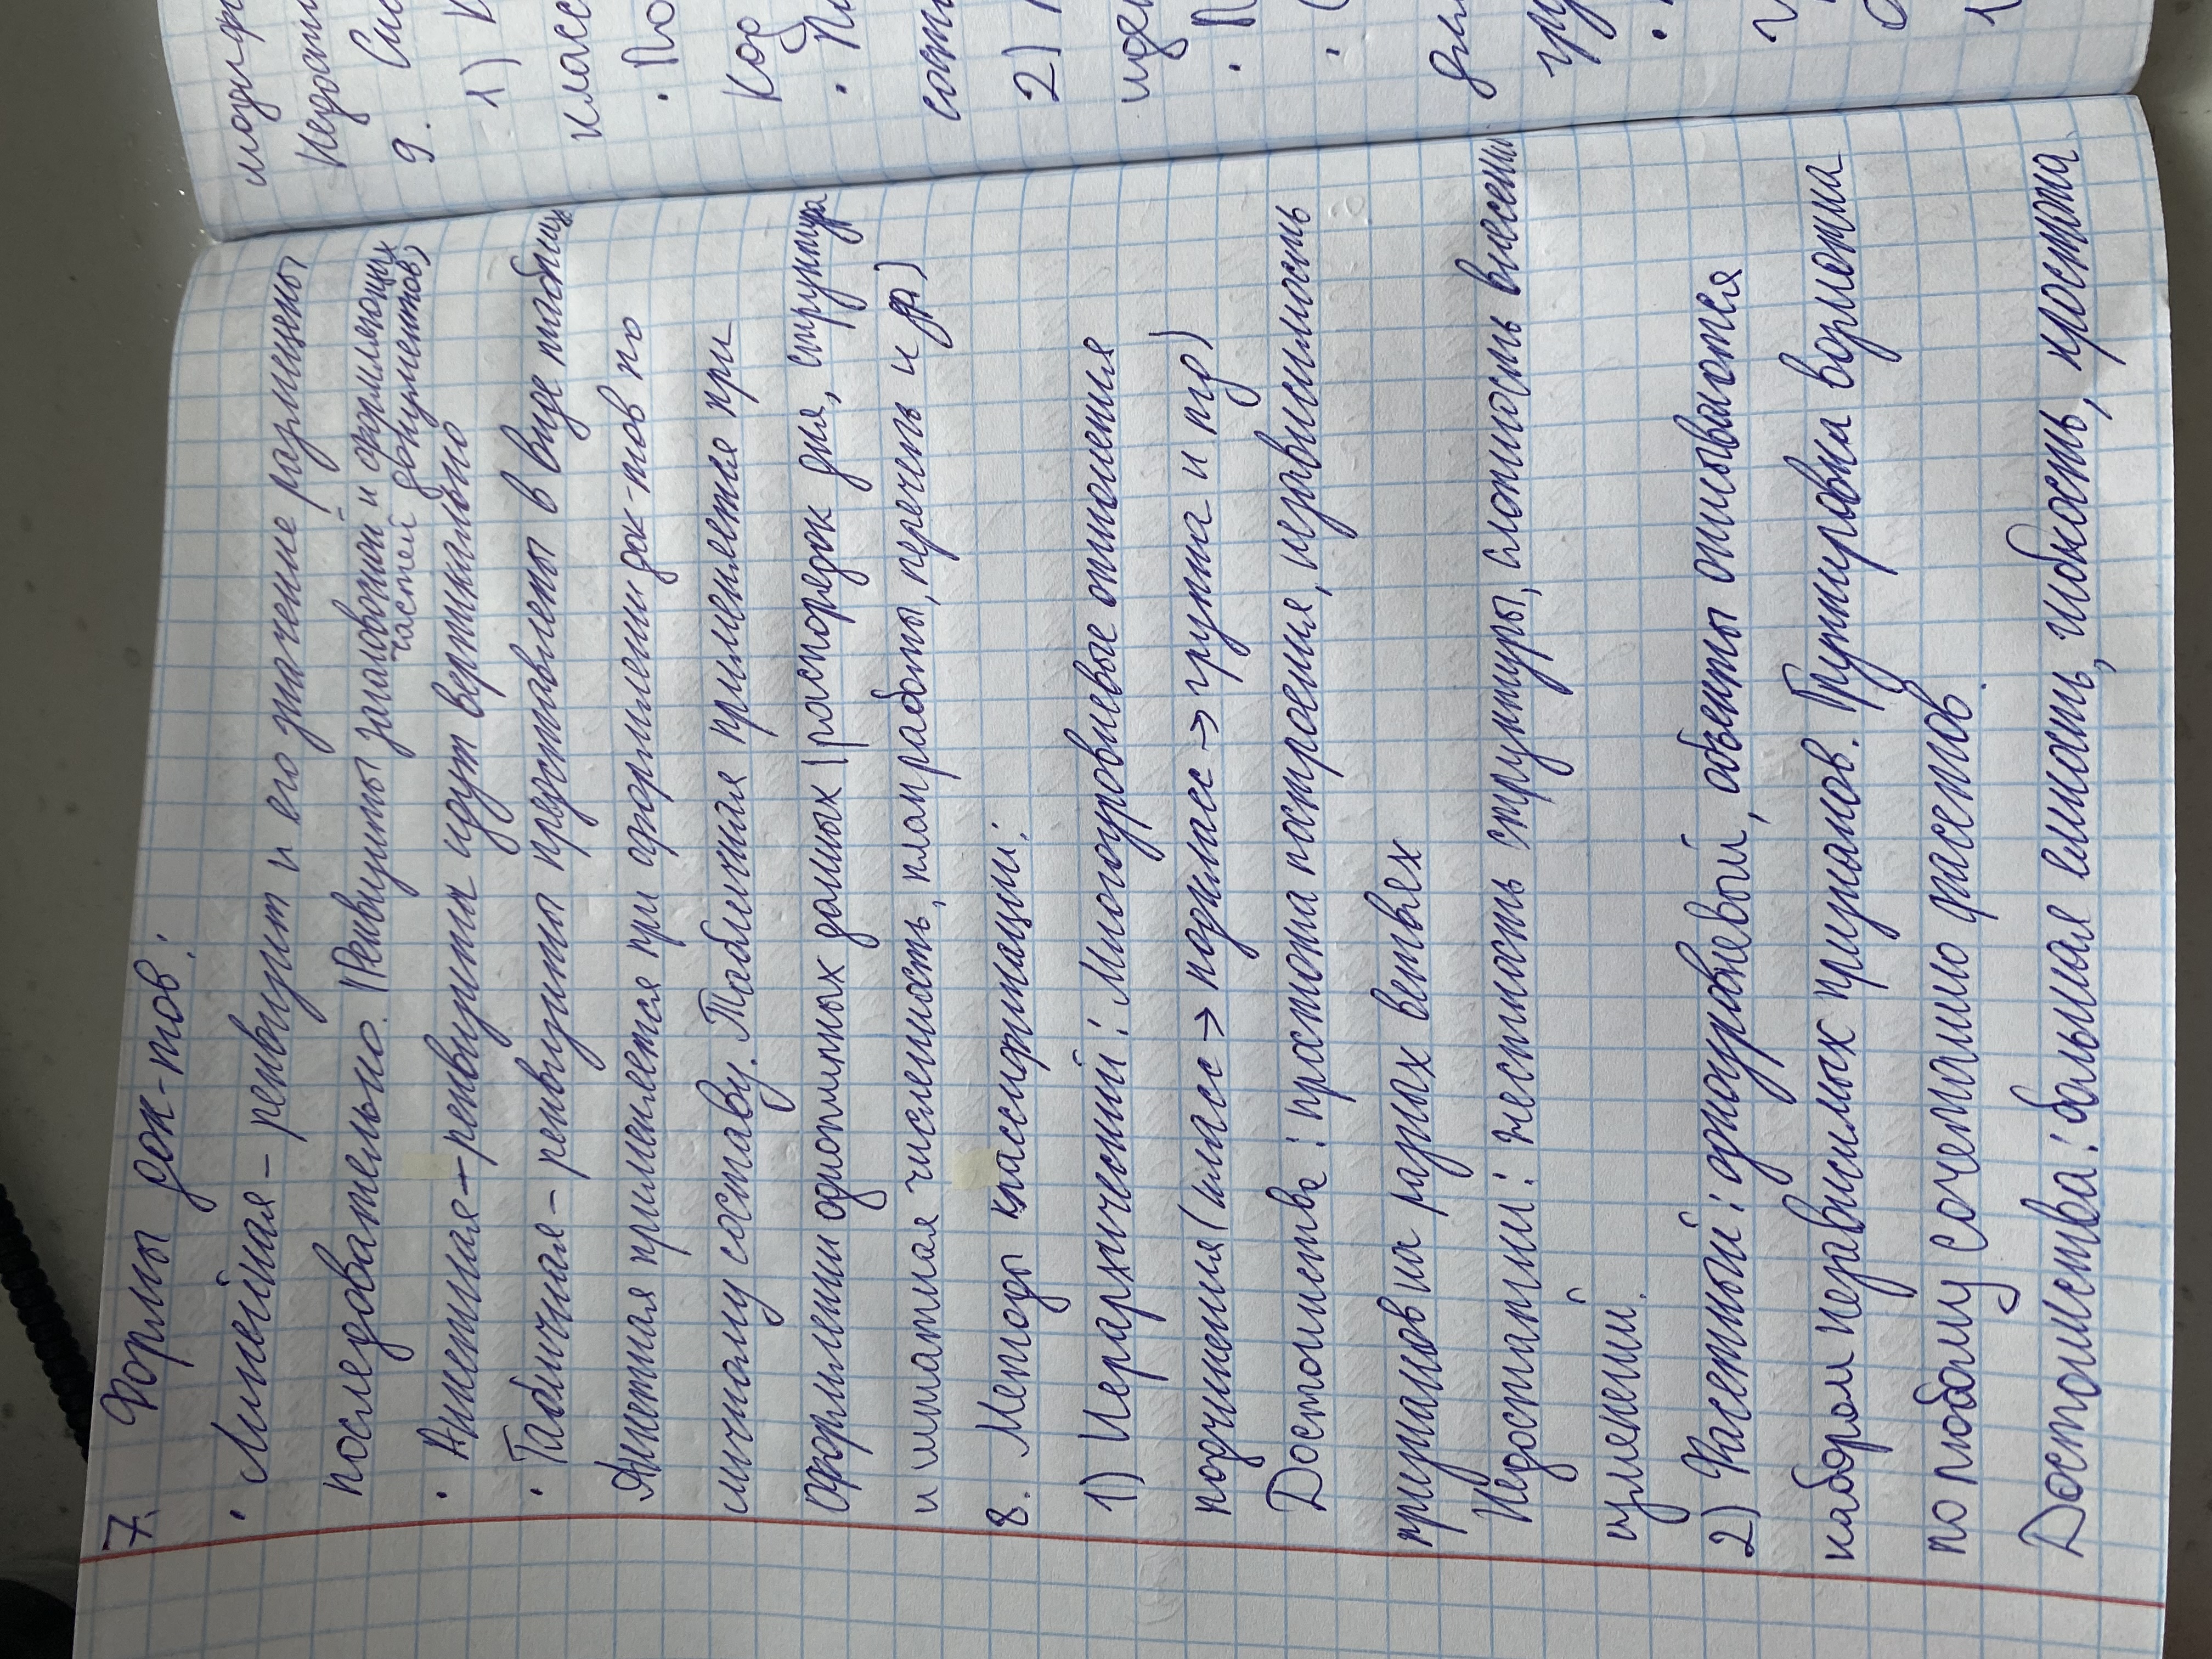 7. Формы док-тов:
• Линейная – реквизит и его значение размещены
последовательно. (Реквизиты заголовочной и оформляющих
частей документов)
• Анкетная – реквизиты идут вертикально
• Табличная – реквизиты представлены в виде таблиц
Анкетная применяется при оформлении док-тов по
личному составу. Табличная применяется при
оформлении однотипных данных (распорядок дня, структура
и штатная численность, план работы, перечень и др)
8. Методы классификации:
1) Иерархический: Многоуровневые отношения
подчинения (класс → подкласс → группа и тд)
Достоинства: простота построения, независимость
признаков на разных ветвях
Недостатки: жесткость структуры, сложность внесени
изменений.
2) Фасетный: одноуровневый, объекты описываются
набором независимых признаков. Группировка возможна
по любому сочетанию фасетов.
Достоинства: большая емкость, гибкость, простота
9.
1)
класс
• По
код
2)